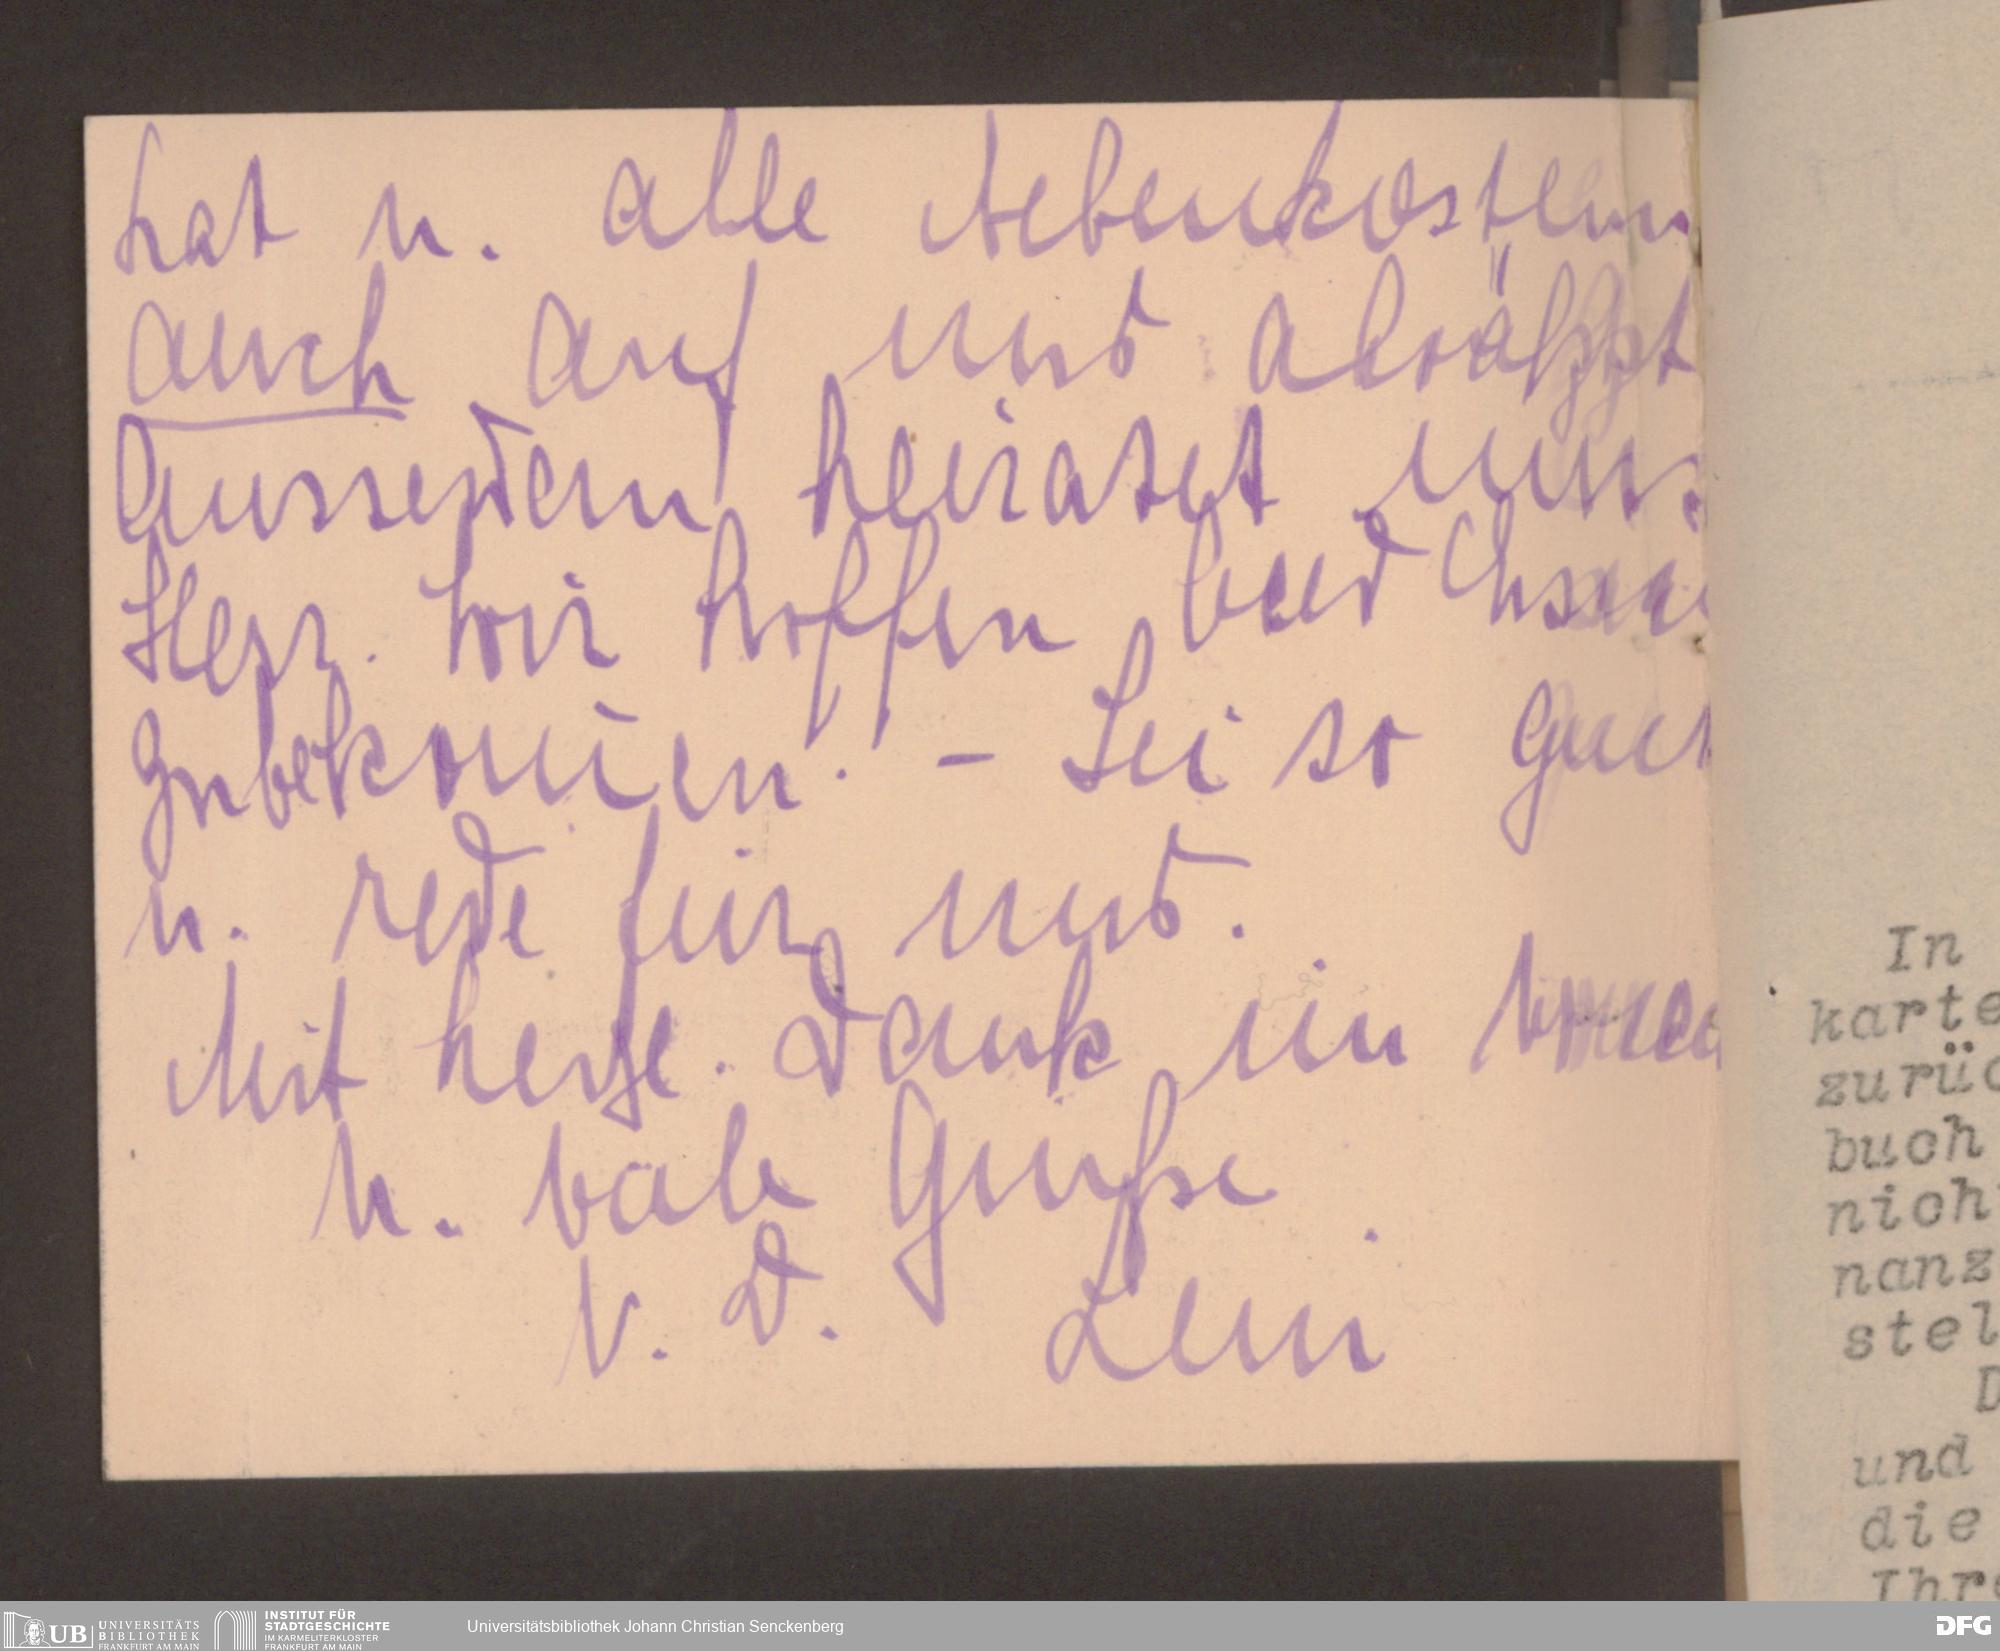 hat u. alle Nebenkosten
auch auf uns abwälzt
Ausserdem heiratet uns.
Herr. Wir hoffen
zubekom̄en. – Sei so gut
u. rede für uns.
Mit herzl. Dank im
u. viele Grüße
V. D. Leni
In
karte
zurüc
buch
nich
nanz
stel
D
und
die
Ihre
UB UNIVERSITÄTS
BIBLIOTHEK
FRANKFURT AM MAIN
INSTITUT FÜR
STADTGESCHICHTE
IM KARMELITERKLOSTER
FRANKFURT AM MAIN
Universitätsbibliothek Johann Christian Senckenberg
DFG